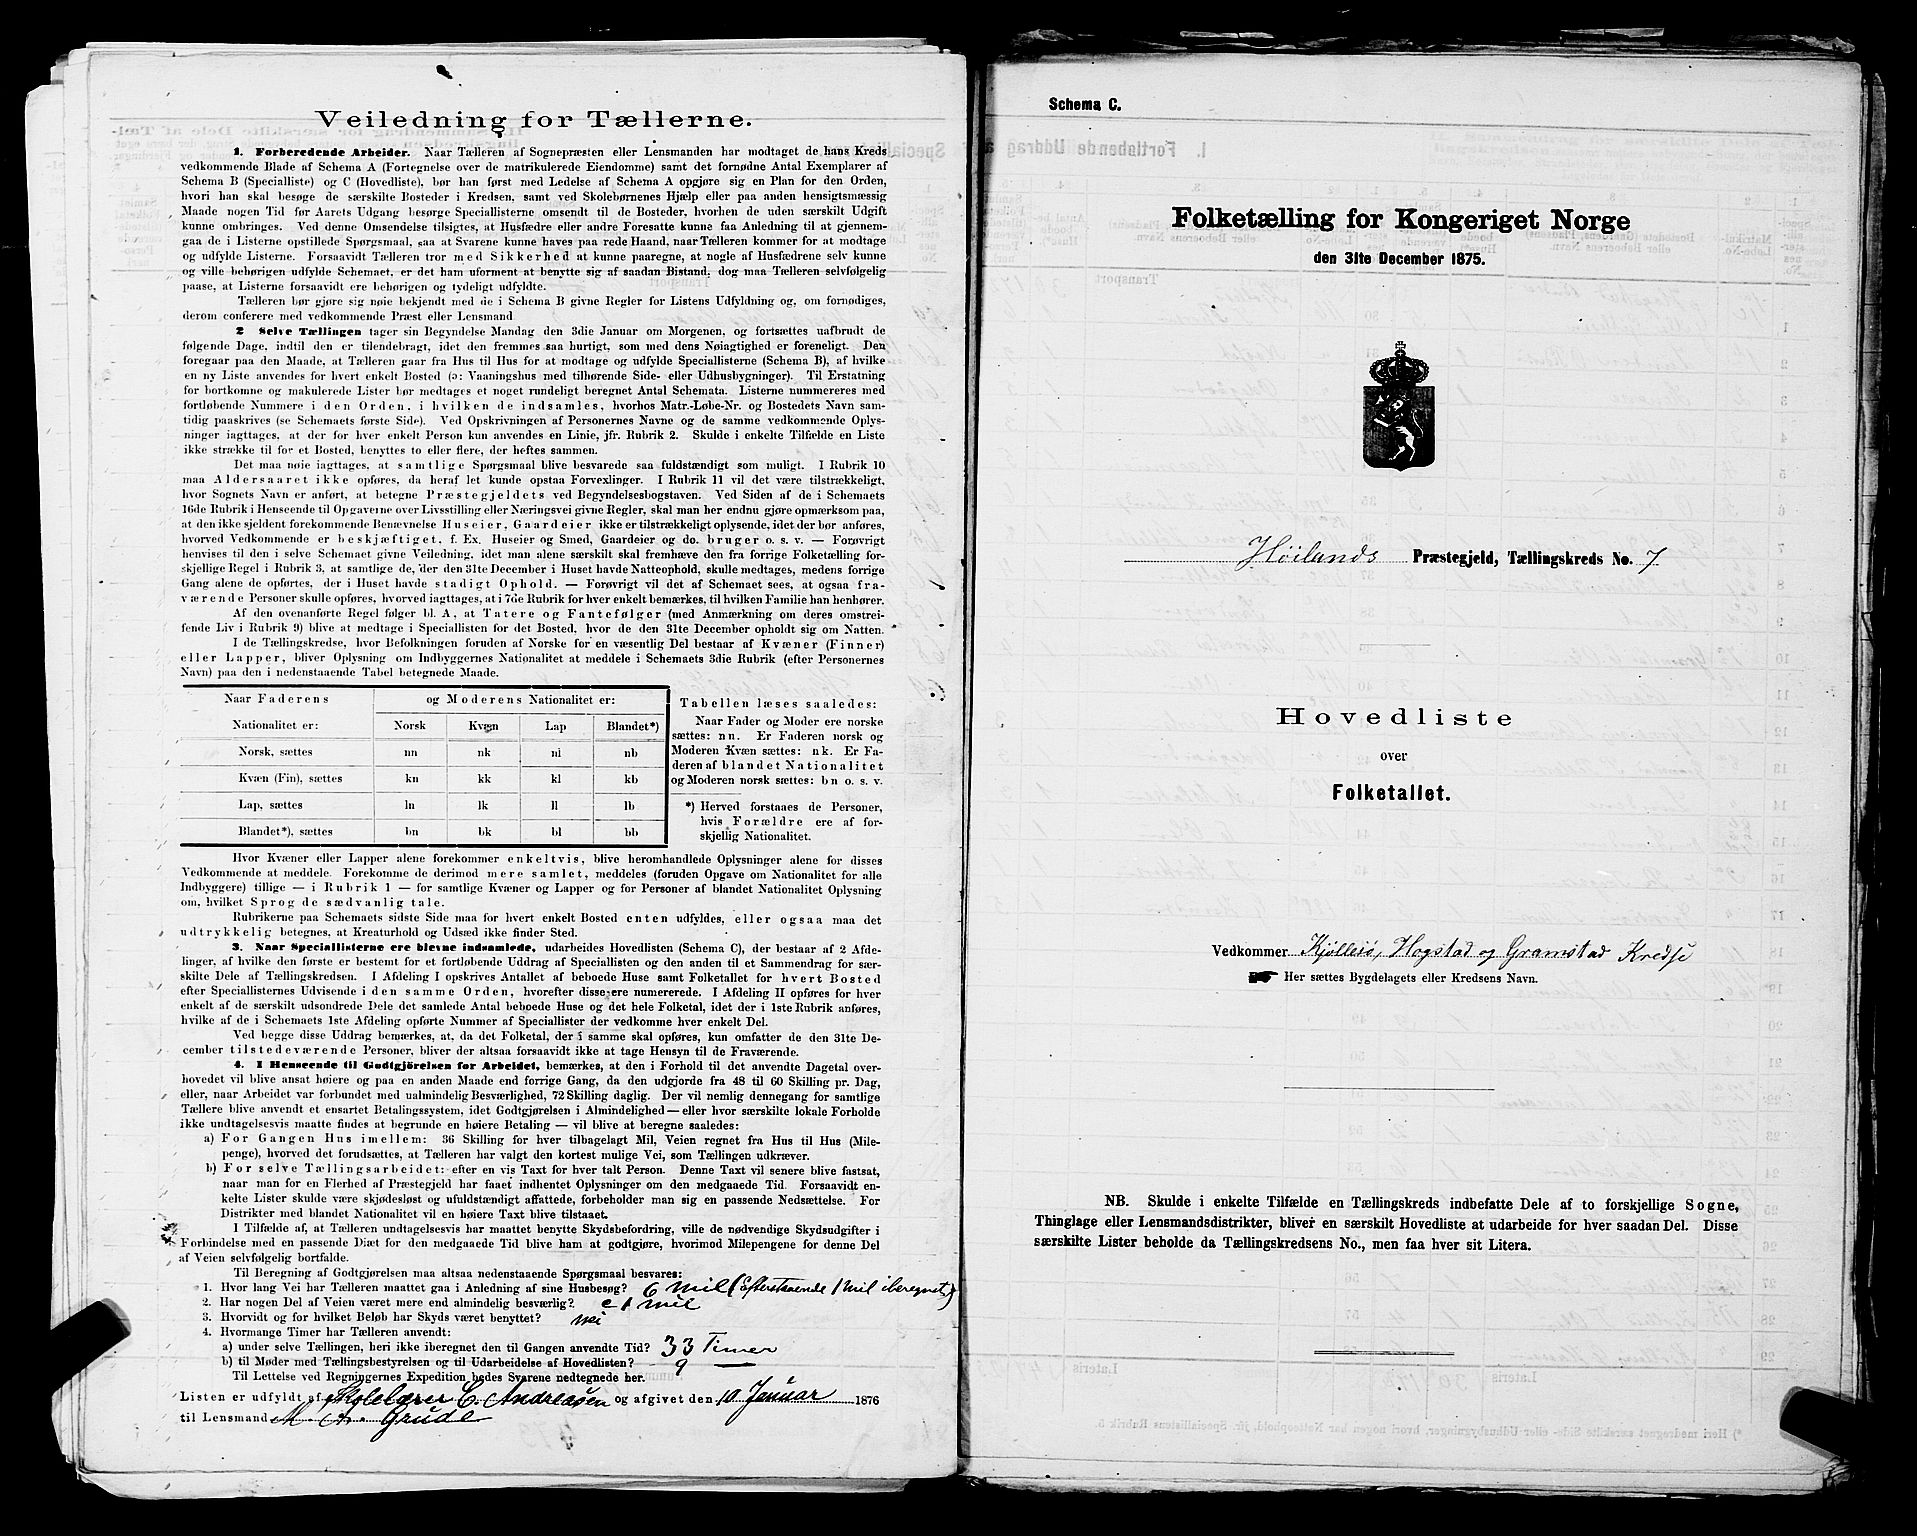 Veiledning for Tællerne.
1. Forberedende Arbeider. Naar Tælleren af Sognepræsten eller Lensmanden har modtaget de hans Kreds
vedkommende Blade af Schema A (Fortegnelse over de matrikulerede Eiendomme) samt det fornødne Antal Exemplarer af
Schema B (Specialliste) og C (Hovedliste), bør han først med Ledelse af Schema A opgjøre sig en Plan for den Orden,
hvori han skal besøge de særskilte Bosteder i Kredsen, samt ved Skolebørnenes Hjælp eller paa anden hensigtsmæssig
Maade nogen Tid før Aarets Udgang besørge Speciallisterne omsendt til de Bosteder, hvorhen de uden særskilt Udgift
kunne ombringes. Ved denne Omsendelse tilsigtes, at Husfædre eller andre Foresatte kunne faa Anledning til at gjennem-
gaa de i Listerne opstillede Spørgsmaal, saa at Svarene kunne haves paa rede Haand, naar Tælleren kommer for at modtage
og udfylde Listerne. Forsaavidt Tælleren tror med Sikkerhed at kunne paaregne, at nogle af Husfædrene selv kunne
og ville behørigen udfylde Schemaet, er det ham uforment at benytte sig af saadan Bistand; dog maa Tælleren selvfølgelig
paase, at Listerne forsaavidt ere behørigen og tydeligt udfyldte.
Tælleren bør gjøre sig nøie bekjendt med de i Schema B givne Regler for Listens Udfyldning og, om fornødiges,
derom conferere med vedkommende Præst eller Lensmand.
2 Selve Tællingen tager sin Begyndelse Mandag den 3die Januar om Morgenen, og fortsættes uafbrudt de
følgende Dage, indtil den er tilendebragt, idet den fremmes saa hurtigt, som med dens Nøiagtighed er foreneligt. Den
foregaar paa den Maade, at Tælleren gaar fra Hus til Hus for at modtage og udfylde Speciallisterne (Schema B), af hvilke
en ny Liste anvendes for hvert enkelt Bosted (ɔ: Vaaningshus med tilhørende Side- eller Udhusbygninger). Til Erstatning
for bortkomne og makulerede Lister bør medtages et noget rundeligt beregnet Antal Schemata. Listerne nummereres med
fortløbende Nummere i den Orden, i hvilken de indsamles, hvorhos Matr.-Løbe-Nr. og Bostedets Navn sam-
tidig paaskrives (se Schemaets første Side). Ved Opskrivningen af Personernes Navne og de samme vedkommende Oplys-
ninger iagttages, at der for hver enkelt Person kun anvendes en Linie, jfr. Rubrik 2. Skulde i enkelte Tilfælde en Liste
ikke strække til for et Bosted, benyttes to eller flere, der heftes sammen.
Det maa nøie iagttages, at samtlige Spørgsmaal blive besvarede saa fuldstændigt som muligt. I Rubrik 10
maa Aldersaaret ikke opføres, da heraf let kunde opstaa Forvexlinger. I Rubrik 11 vil det være tilstrækkeligt,
hvor Sognets Navn er anført, at betegne Præstegjeldets ved Begyndelsesbogstaven. Ved Siden af de i Schemaets
16de Rubrik i Henseende til Opgaverne over Livsstilling eller Næringsvei givne Regler, skal man her endnu gjøre opmærksom paa,
at den ikke sjeldent forekommende Benævnelse Huseier, Gaardeier ikke er tilstrækkeligt oplysende, idet der bør anføres,
hvorved Vedkommende er beskjæftiget, f. Ex. Huseier og Smed, Gaardeier og do. bruger o. s. v. — Forøvrigt
henvises til den i selve Schemaet givne Veiledning, idet man alene særskilt skal fremhæve den fra forrige Folketælling for-
skjellige Regel i Rubrik 3, at samtlige de, der den 31te December i Huset havde Natteophold, skulle medtages, medens forrige
Gang alene de opførtes, der i Huset havde stadigt Ophold. — Forøvrigt vil det af Schemaet sees, at ogsaa fra-
værende Personer skulle opføres, hvorved iagttages, at i 7de Rubrik for hver enkelt bemærkes, til hvilken Familie han henhører.
Af den ovenanførte Regel følger bl. A., at Tatere og Fantefølger (med Anmærkning om deres omstrei-
fende Liv i Rubrik 9) blive at medtage i Speciallisten for det Bosted, hvor de den 31te December opholdt sig om Natten.
I de Tællingskredse, hvor Befolkningen foruden af Norske for en væsentlig Del bestaar af Kvæner (Finner)
eller Lapper, bliver Oplysning om Indbyggernes Nationalitet at meddele i Schemaets 3die Rubrik (efter Personernes
Navn) paa den i nedenstaaende Tabel betegnede Maade.
Naar Faderens og Moderens Nationalitet er:
Nationalitet er: Norsk Kvæn Lap Blandet*)
Norsk, sættes nn nk nl nb
Kvæn (Fin), sættes kn kk kl kb
Lap, sættes ln lk ll lb
Blandet*), sættes bn bk bl bb
Tabellen læses saaledes:
Naar Fader og Moder ere norske
sættes: nn. Er Faderen norsk og
Moderen Kvæn sættes: nk. Er Fa-
deren af blandet Nationalitet
og Moderen norsk sættes: bn o. s. v.
*) Herved forstaaes de Personer,
hvis Forældre ere af for-
skjellig Nationalitet.
Hvor Kvæner eller Lapper alene forekommer enkeltvis, blive heromhandlede Oplysninger alene for disses
Vedkommende at meddele. Forekomme de derimod mere samlet, meddeles (foruden Opgave om Nationalitet for alle
Indbyggere) tillige — i Rubrik 1 — for samtlige Kvæner og Lapper og for Personer af blandet Nationalitet Oplysning
om, hvilket Sprog de sædvanlig tale.
Rubrikerne paa Schemaets sidste Side maa for hvert enkelt Bosted enten udfyldes, eller ogsaa maa det
udtrykkelig betegnes, at Kreaturhold og Udsæd ikke finder Sted.
3. Naar Speciallisterne ere blevne indsamlede, udarbeides Hovedlisten (Schema C), der bestaar af 2 Afde-
linger, af hvilke den første er bestemt for et fortløbende Uddrag af Speciallisten og den anden til et Sammendrag for sær-
skilte Dele af Tællingskredsen. I Afdeling I opskrives Antallet af beboede Huse samt Folketallet for hvert Bosted
efter Speciallisternes Udvisende i den samme Orden, hvorefter disse ere nummererede. I Afdeling II opføres for hver
enkelt af de særskilt udsondrede Dele det samlede Antal beboede Huse og det hele Folketal, idet der i 1ste Rubrik anføres,
hvilke af de i Schemaets 1ste Afdeling opførte Nummer af Speciallister der vedkomme hver enkelt Del.
Ved begge disse Uddrag bemærkes, at, da det Folketal, der i samme skal opføres, kun omfatter de den 31te De-
cember tilstedeværende Personer, bliver der altsaa forsaavidt ikke at tage Hensyn til de Fraværende.
4. I Henseende til Godtgjörelsen for Arbeidet, bemærkes, at den i Forhold til det anvendte Dagetal over-
hovedet vil blive ansat høiere og paa en anden Maade end forrige Gang, da den udgjorde fra 48 til 60 Skilling pr. Dag,
eller, naar Arbeidet var forbundet med ualmindelig Besværlighed, 72 Skilling daglig. Der vil nemlig dennegang for samtlige
Tællere blive anvendt et ensartet Betalingssystem, idet Godtgjørelsen i Almindelighed — eller hvor særskilte lokale Forholde
ikke undtagelsesvis maatte findes at begrunde en høiere Betaling — vil blive at beregne saaledes:
a) For Gangen Hus imellem: 36 Skilling for hver tilbagelagt Mil, Veien regnet fra Hus til Hus (Mile-
penge), hvorved det forudsættes, at Tælleren har valgt den kortest mulige Vei, som Tællingen udkræver.
b) For selve Tællingsarbeidet: efter en vis Taxt for hver talt Person. Denne Taxt vil senere blive fastsat,
naar man for en Flerhed af Præstegjeld har faaet indhentet Oplysninger om den medgaaede Tid. Forsaavidt en-
kelte Lister skulde være skjødesløst og ufuldstændigt affattede, forbeholder man sig en passende Nedsættelse. For
Distrikter med blandet Nationalitet vil en høiere Taxt blive tilstaaet.
I Tilfælde af, at Tælleren undtagelsesvis har maattet benytte Skydsbefordring, ville de nødvendige Skydsudgifter i
Forbindelse med en passende Diæt for den medgaaede Tid blive ham at godtgjøre, hvorimod Milepengene for denne Del
af Veien selvfølgelig bortfalde.
Til Beregning af Godtgjørelsen maa altsaa nedenstaaende Spørgsmaal besvares:
1. Hvor lang Vei har Tælleren maattet gaa i Anledning af sine Husbesøg? 6 Mil (Efterstaaende 1 Mil iberegnet)
2. Har nogen Del af Veien været mere end almindelig besværlig? c 1 mil
3. Hvorvidt og for hvilket Beløb har Skyds været benyttet? nei
4. Hvormange Timer har Tælleren anvendt:
a) under selve Tællingen, heri ikke iberegnet den til Gangen anvendte Tid? 33 Timer
b) til Møder med Tællingsbestyrelsen og til Udarbeidelse af Hovedlisten? 9 —
Til Lettelse ved Regningernes Expedition bedes Svarene nedtegnede her.
Listen er udfyldt af Skolelærer C. Andreasen og afgivet den 10 Januar 1876
til Lensmand M. A. Grude
Schema C.
Folketælling for Kongeriget Norge
den 31te December 1875.
Höilands Præstegjeld, Tællingskreds No. 7
Hovedliste
over
Folketallet.
Vedkommer Kjölleiö, Hogstad og Gramstad Kredse
Her sættes Bygdelagets eller Kredsens Navn.
NB. Skulde i enkelte Tilfælde en Tællingskreds indbefatte Dele af to forskjellige Sogne,
Thinglage eller Lensmandsdistrikter, bliver en særskilt Hovedliste at udarbeide for hver saadan Del. Disse
særskilte Lister beholde da Tællingskredsens No., men faa hver sit Litera.